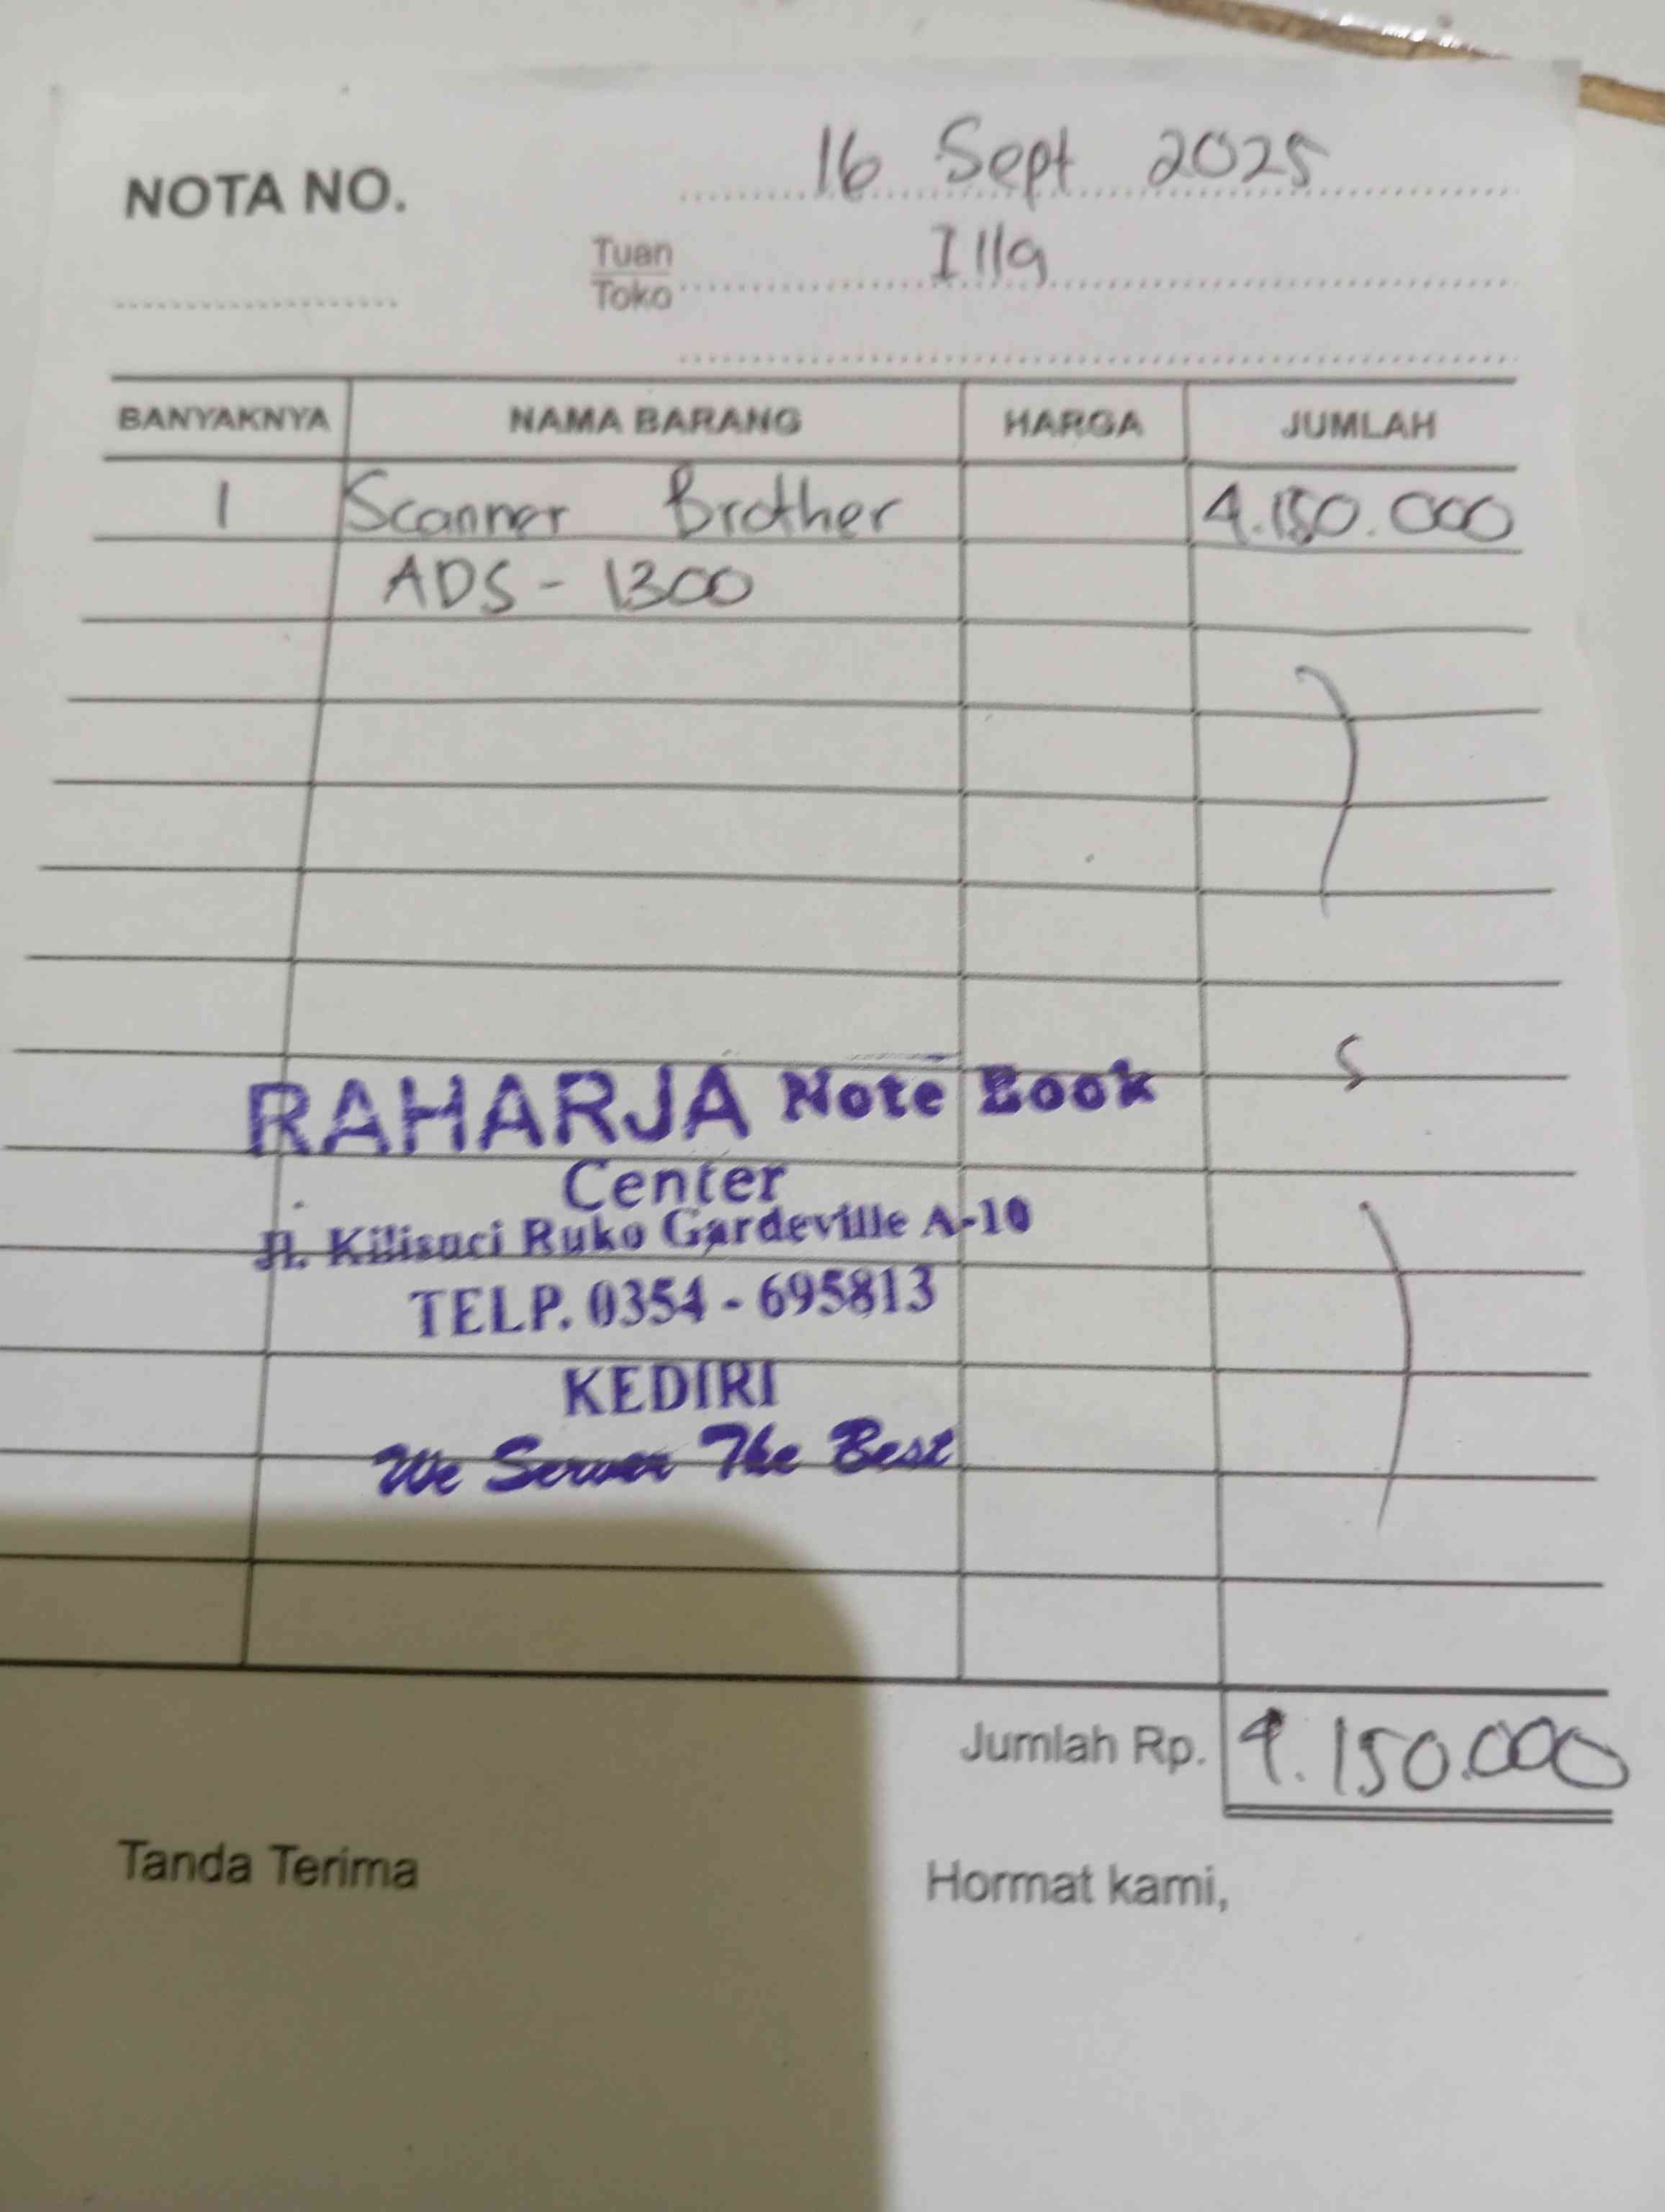 16 Sept 2025
NOTA NO.
Tuan
Illa
Toko
BANYAKNYA NAMA BARANG HARGA JUMLAH
1 Scanner Brother 4.150.000
ADS - 1300
RAHARJA Note Book
Center
Jl. Kilisuci Ruko Gardeville A-10
TELP. 0354 - 695813
KEDIRI
We Server The Best
Jumlah Rp. 4.150.000
Tanda Terima Hormat kami,